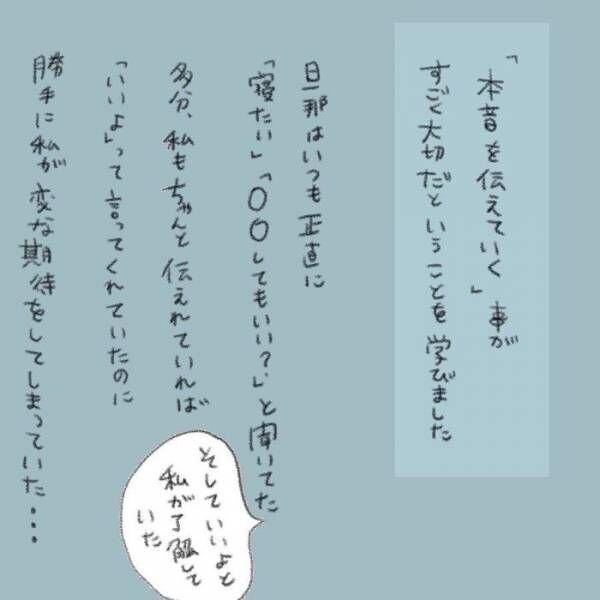 「本音を伝えていく」事が
すごく大切だということを学びました
旦那はいつも正直に
「寝たい」「〇〇してもいい？」と聞いてた
そしていいよと
私が了解して
いた
多分、私もちゃんと伝えれていれば
「いいよ」って言ってくれていたのに
勝手に私が変な期待をしてしまっていた・・・